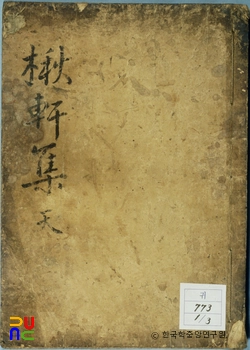 楸軒集 天
귀
773
1/3
© 한국학중앙연구원